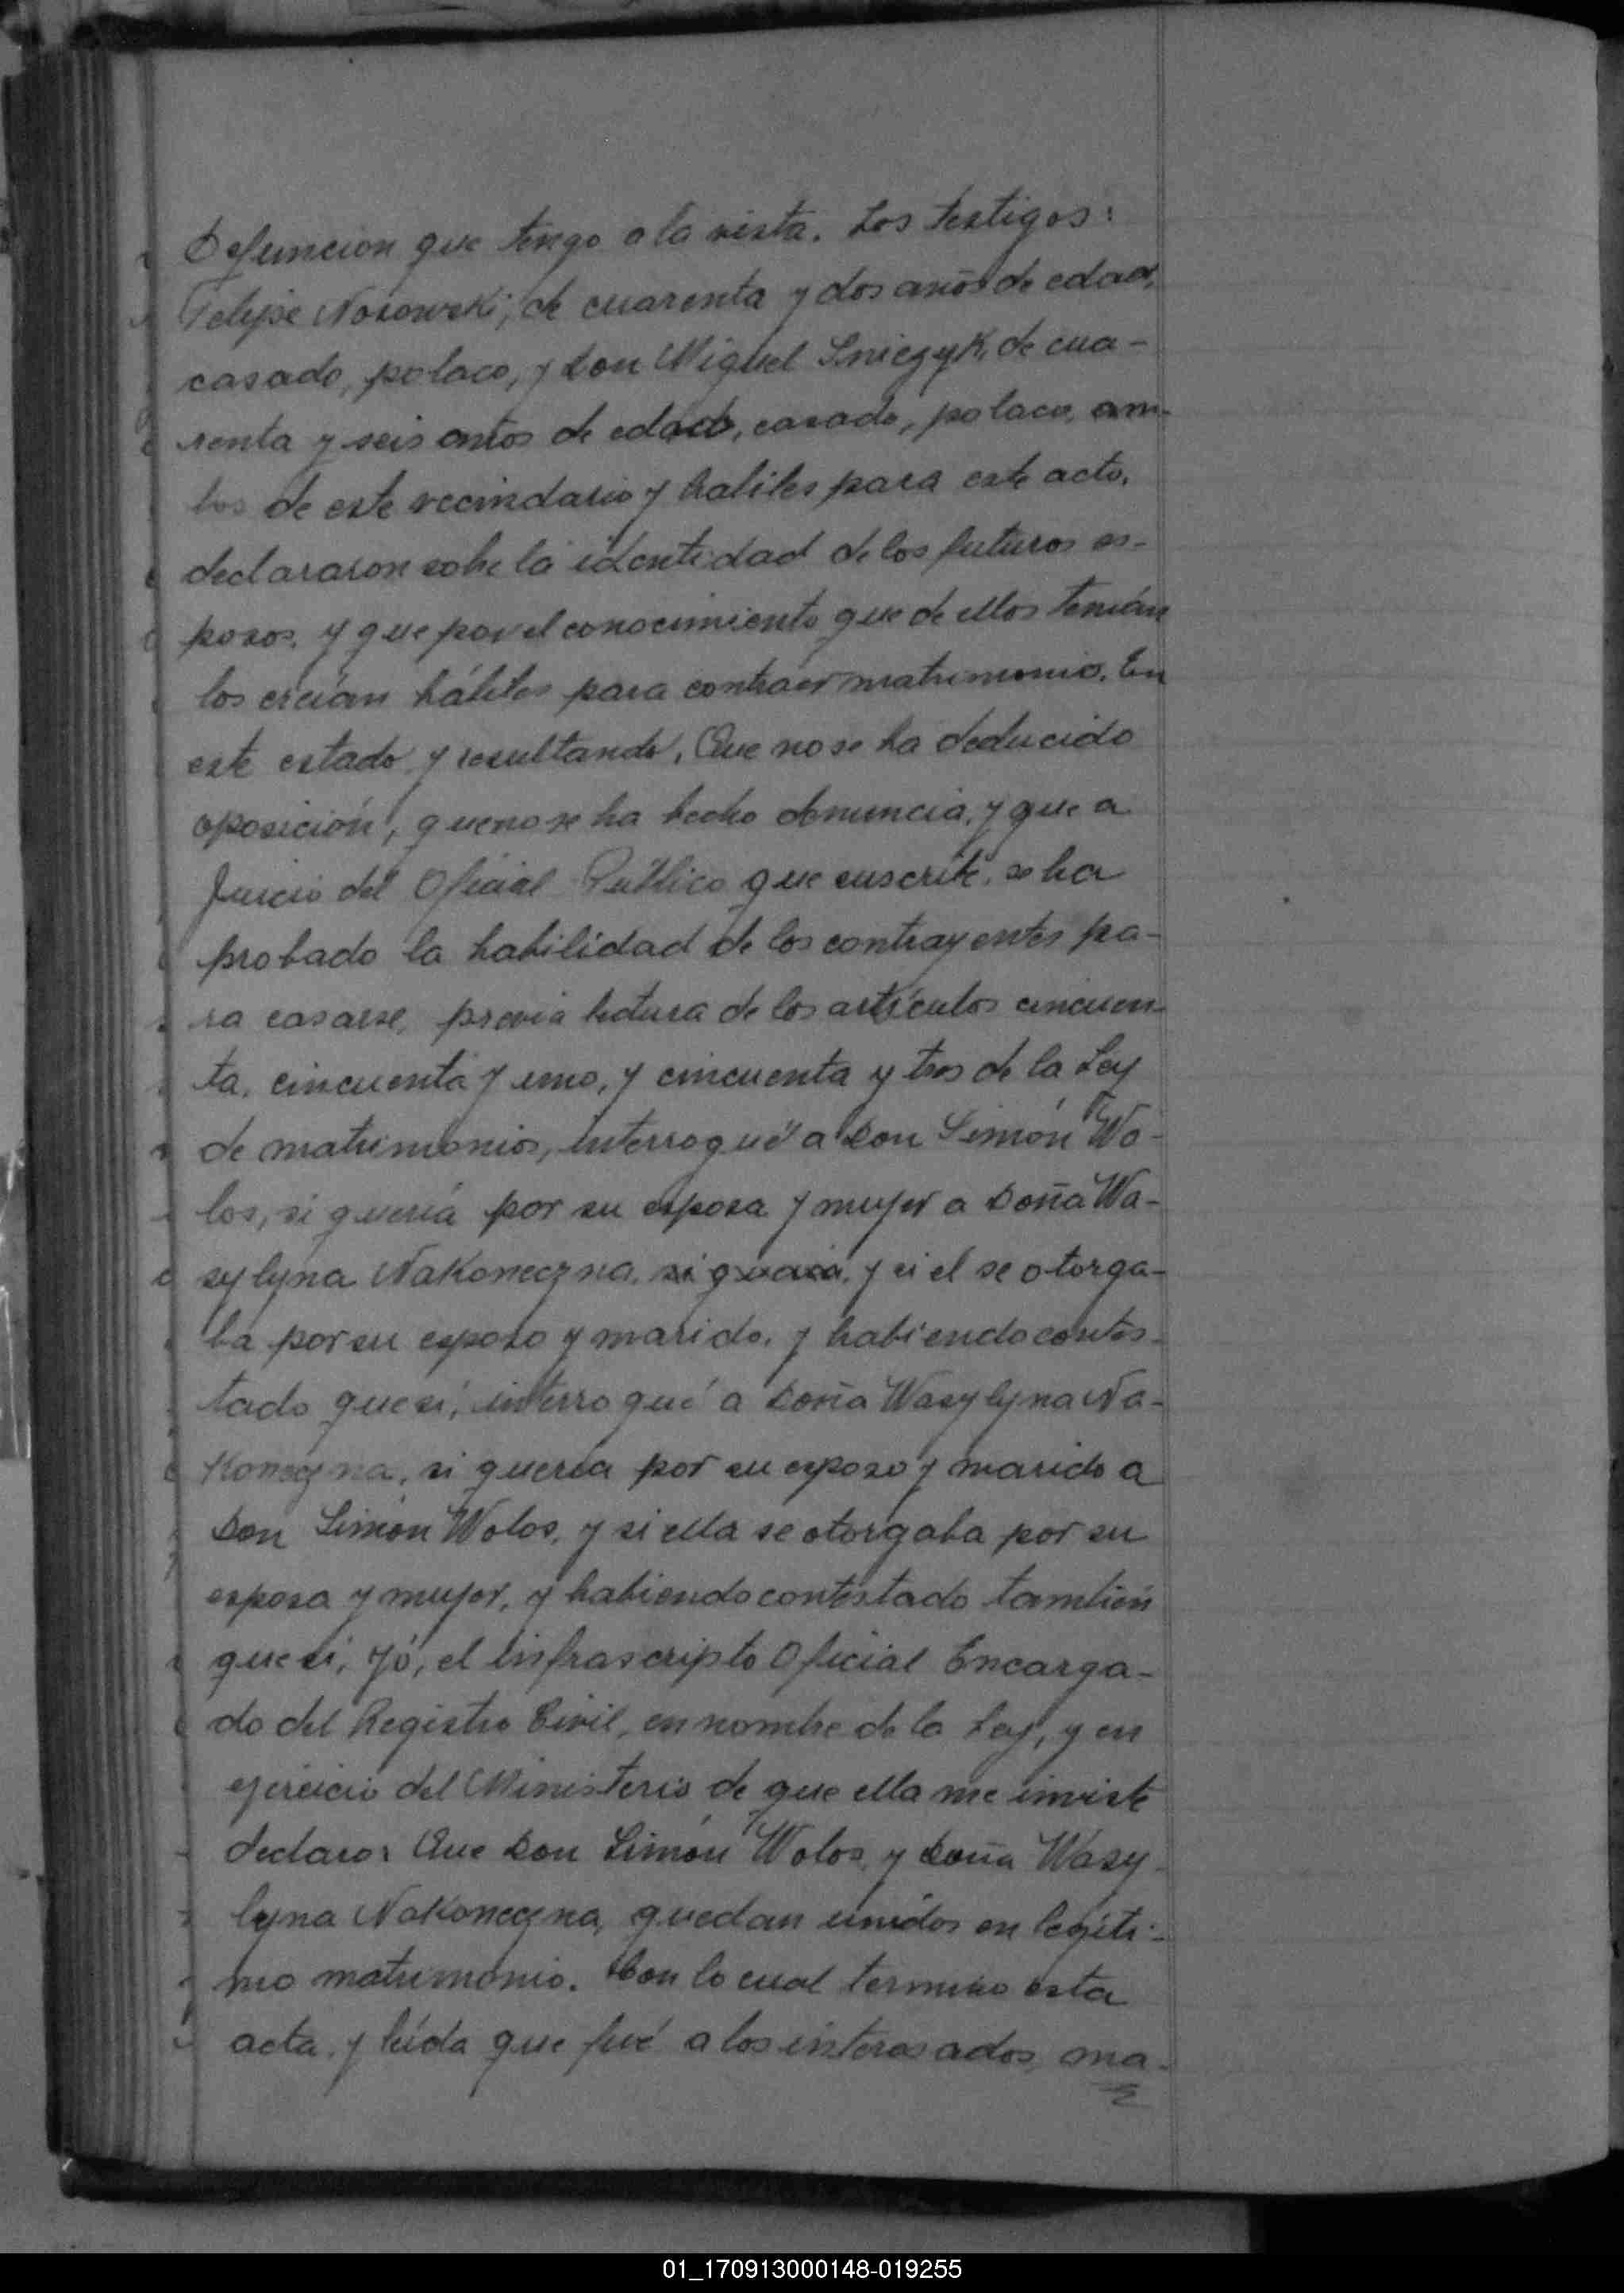 Defuncion que tengo a la vista. Los testigos:
Felipe Nosowski, de cuarenta y dos años de edad,
casado, polaco, y Don Miguel Sniezyk, de cua-
renta y seis años de edad, casado, polaco, am-
bos de este vecindario y habiles para este acto,
declararon sobre la identidad de los futuros es-
posos, y que por el conocimiento que de ellos tenían
los creían hábiles para contraer matrimonio. En
este estado y resultando, Que no se ha deducido
oposición, que no se ha hecho denuncia, y que a
Juicio del Oficial Público que suscribe, se ha
probado la habilidad de los contrayentes pa-
ra casarse, previa lectura de los artículos cincuen-
ta, cincuenta y uno, y cincuenta y tres de la Ley
de matrimonios, interrogué a Don Simón Wo-
los, si quería por su esposa y mujer a Doña Wa-
sylyna Nakoneczna, si quería, y si el se otorga-
ba por su esposo y marido, y habiendo contes-
tado que si, interrogué a Doña Wasylyna Na-
koneczna, si quería por su esposo y marido a
Don Simón Wolos, y si ella se otorgaba por su
esposa y mujer, y habiendo contestado también
que si, Yó, el infrascripto Oficial Encarga-
do del Registro Civil, en nombre de la Ley, y en
ejercicio del Ministerio de que ella me inviste
declaro: Que Don Simón Wolos, y Doña Wasy-
lyna Nakoneczna, quedan unidos en legíti-
mo matrimonio. Con lo cual termino esta
acta, y leída que fué a los interesados, ma-
01_170913000148-019255